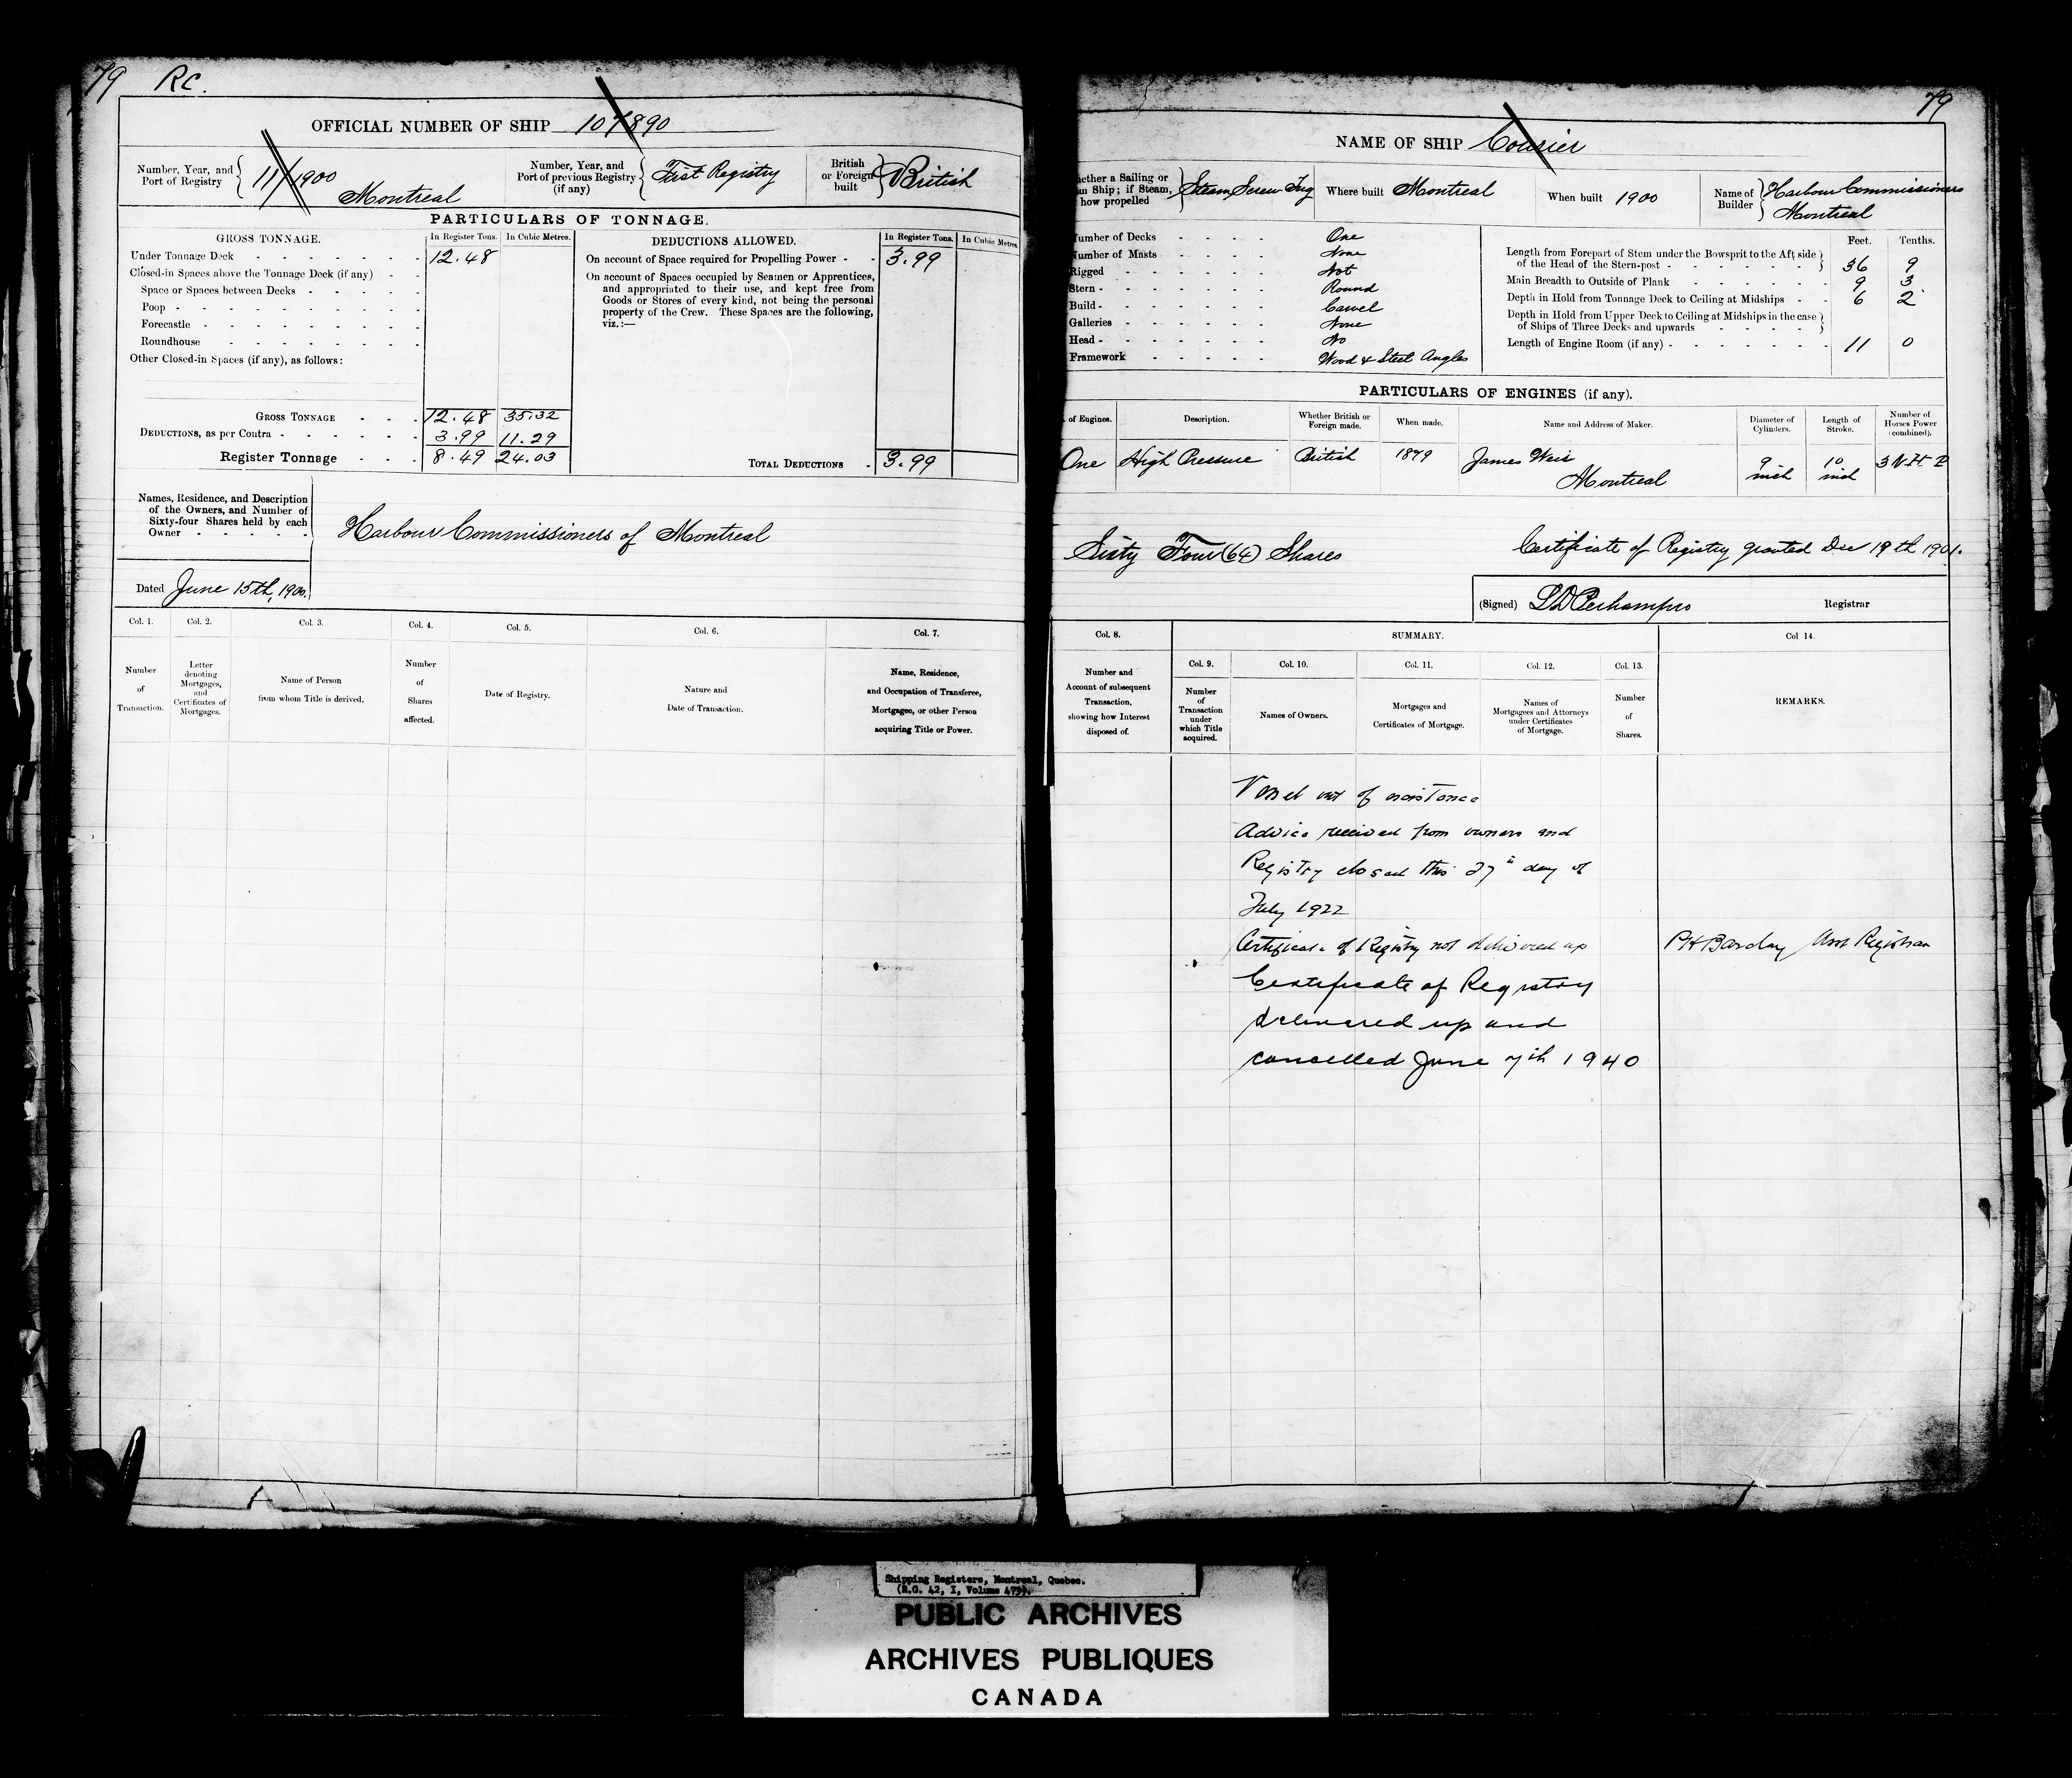 79 RC.
OFFICIAL NUMBER OF SHIP 107890
Number, Year, and Port of Registry 11/1900 Montreal
Number, Year, and Port of previous Registry (if any) First Registry
British or Foreign built British
PARTICULARS OF TONNAGE.
GROSS TONNAGE. In Register Tons. In Cubic Metres.
Under Tonnage Deck 12.48
Closed-in Spaces above the Tonnage Deck (if any)
Space or Spaces between Decks
Poop
Forecastle
Roundhouse
Other Closed-in Spaces (if any), as follows:
GROSS TONNAGE 12.48 35.32
DEDUCTIONS, as per Contra 3.99 11.29
Register Tonnage 8.49 24.03
DEDUCTIONS ALLOWED. In Register Tons. In Cubic Metres.
On account of Space required for Propelling Power 3.99
On account of Spaces occupied by Seamen or Apprentices,
and appropriated to their use, and kept free from
Goods or Stores of every kind, not being the personal
property of the Crew. These Spaces are the following,
viz.:—
TOTAL DEDUCTIONS 3.99
Names, Residence, and Description
of the Owners, and Number of
Sixty-four Shares held by each
Owner
Harbour Commissioners of Montreal
Dated June 15th, 1900.
Col. 1. Col. 2. Col. 3. Col. 4. Col. 5. Col. 6. Col. 7.
Number of Transaction.
Letter denoting Mortgages, and Certificates of Mortgages.
Name of Person from whom Title is derived.
Number of Shares affected.
Date of Registry.
Nature and Date of Transaction.
Name, Residence, and Occupation of Transferee, Mortgagee, or other Person acquiring Title or Power.
79
NAME OF SHIP Courier
hether a Sailing or
m Ship; if Steam,
how propelled
Steam Screw Tug
Where built Montreal
When built 1900
Name of Builder Harbour Commissioners Montreal
umber of Decks One
umber of Masts None
Rigged Not
Stern Round
Build Carvel
Galleries None
Head No
Framework Wood & Steel Angles
Feet. Tenths.
Length from Forepart of Stem under the Bowsprit to the Aft side
of the Head of the Stern-post 36 9
Main Breadth to Outside of Plank 9 3
Depth in Hold from Tonnage Deck to Ceiling at Midships 6 2
Depth in Hold from Upper Deck to Ceiling at Midships in the case
of Ships of Three Decks and upwards
Length of Engine Room (if any) 11 0
PARTICULARS OF ENGINES (if any).
. of Engines. Description. Whether British or Foreign made. When made. Name and Address of Maker. Diameter of Cylinders. Length of Stroke. Number of Horses Power (combined).
One High Pressure British 1879 James Weir Montreal 9 inch 10 inch 3 N H P
Sixty Four (64) Shares
Certificate of Registry granted Dec 19th 1901.
(Signed) Registrar
Col. 8. SUMMARY. Col 14.
Col. 9. Col. 10. Col. 11. Col. 12. Col. 13.
Number and Account of subsequent Transaction, showing how Interest disposed of.
Number of Transaction under which Title acquired.
Names of Owners.
Mortgages and Certificates of Mortgage.
Names of Mortgagees and Attorneys under Certificates of Mortgage.
Number of Shares.
REMARKS.
Vessel out of existence
Advice received from owners and
Registry closed this 27th day of
July 1922
Certificate of Registry not delivered up PH Barclay Asst Registrar
Certificate of Registry
delivered up and
cancelled June 7th 1940
Shipping Registers, Montreal, Quebec.
(R.G. 42, I, Volume 479).
PUBLIC ARCHIVES
ARCHIVES PUBLIQUES
CANADA